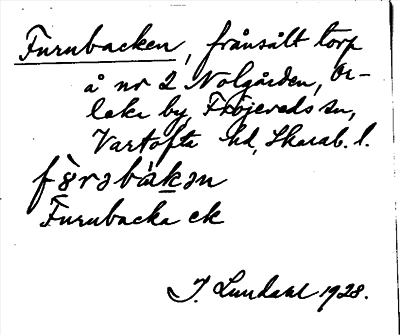 Furubacken, frånsålt torp
å nr 2 Nolgården, Or-
leke by, Fröjereds sn,
Vartofta hd, Skarab. l.
Furubacka ek
J. Lundahl 1928.